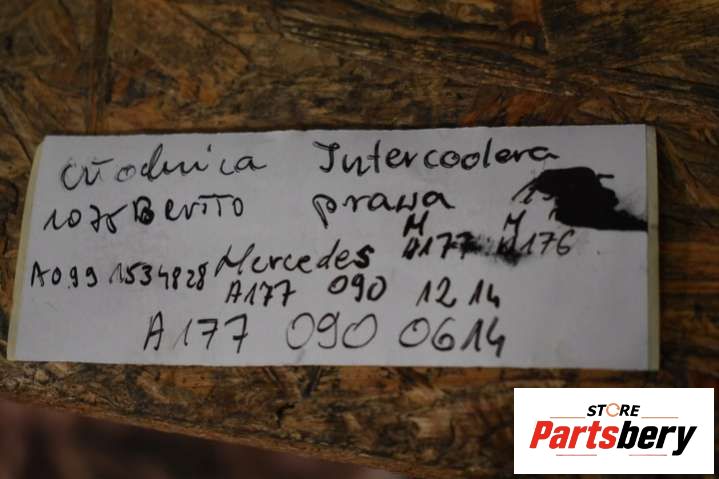 Chłodnica Intercoolera
1075 BERITO prawa
Mercedes A177 A176
A099 1534828
A177 090 1214
A177 090 0614
STORE
Partsbery